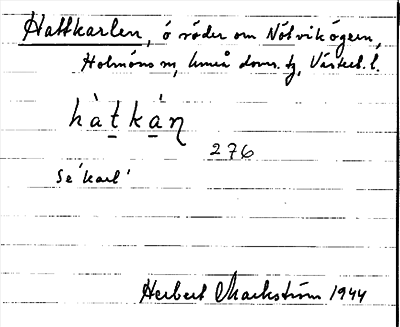 Hattkarlen, ö röder om Nötvikögern,
Holmöns sn, Umeå doms. tg, Västerb. l.
hàt̲ká̲ꞑ
276
se 'karl'
Herbert Markström 1944